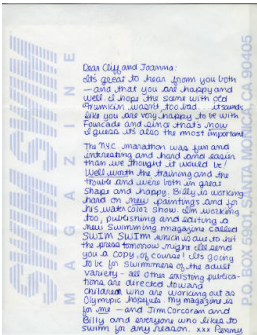 Dear Cliff and Joanna:
It's great to hear from you both
— and that you are happy and
well. I hope the scene with old
Frumkin wasn't too bad. It sounds
like you are very happy to be with
Fourcade and since that's now
I guess it's also the most important.
The N.Y.C. marathon was fun and
interesting and hard and easier
than we thought it would be!
Well worth the training and the
trouble and we're both in great
shape and happy. Billy is working
hard on new paintings and for
his watercolor show. I'm working
too, publishing and editing a
new swimming magazine called
SWIM SWIM which is due to hit
the press tomorrow night. I'll send
you a copy, of course! It's going
to be for swimmers of the adult
variety — all other existing publica-
tions are directed toward
children who are working out as
Olympic hopefuls. My magazine is
for me — and Jim Corcoran and
Billy and everyone who likes to
swim for any reason. xxx Penny
SWIM SWIM
MAGAZINE
MONICA, CA 90405